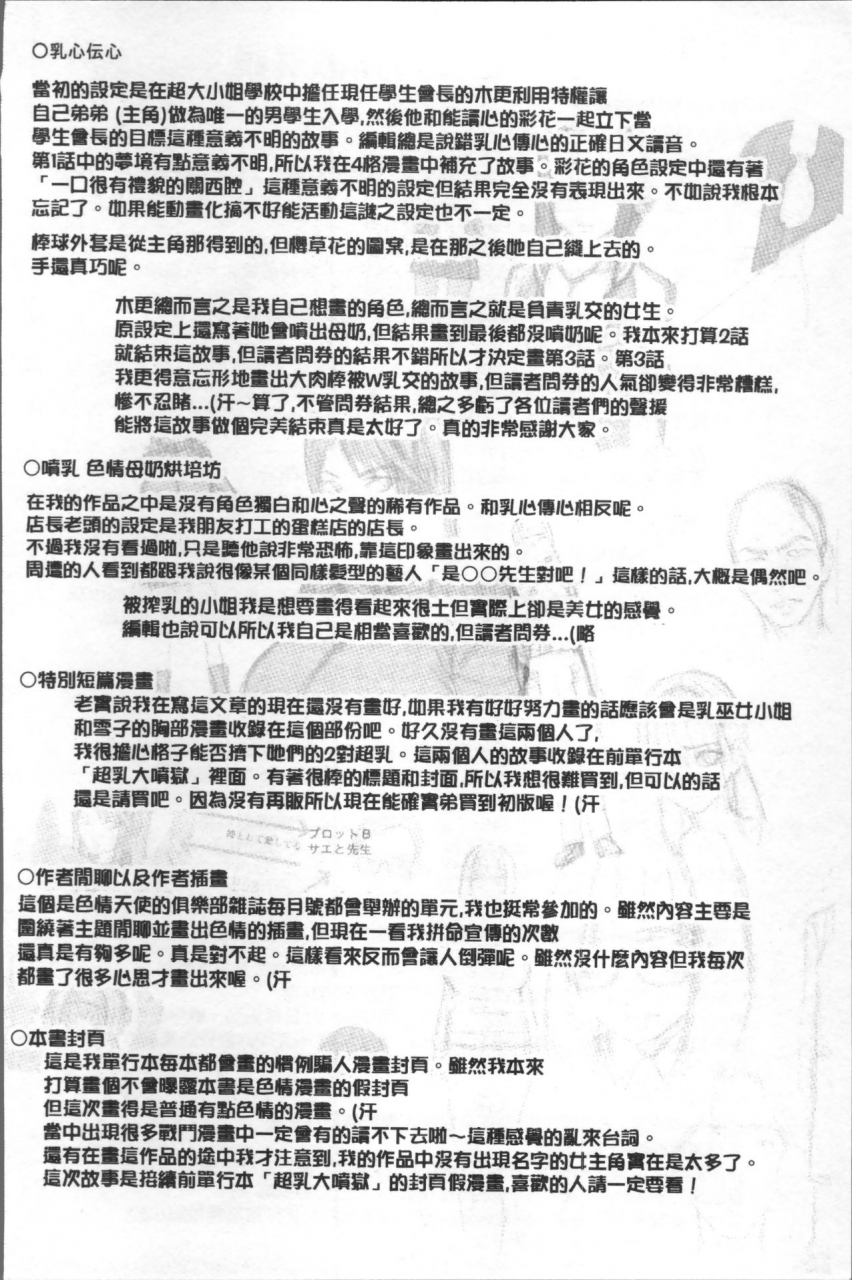 ○乳心伝心
當初的設定是在超大小姐學校中擔任現任學生會長的木更利用特權讓
自己弟弟 (主角)做為唯一的男學生入學,然後他和能讀心的彩花一起立下當
學生會長的目標這種意義不明的故事。編輯總是說錯乳心傳心的正確日文讀音。
第1話中的夢境有點意義不明,所以我在4格漫畫中補充了故事。彩花的角色設定中還有著
「一口很有禮貌的關西腔」這種意義不明的設定但結果完全沒有表現出來。不如說我根本
忘記了。如果能動畫化搞不好能活動這謎之設定也不一定。
棒球外套是從主角那得到的,但櫻草花的圖案,是在那之後她自己縫上去的。
手還真巧呢。
木更總而言之是我自己想畫的角色,總而言之就是負責乳交的女生。
原設定上還寫著她會噴出母奶,但結果畫到最後都沒噴奶呢。我本來打算2話
就結束這故事,但讀者問券的結果不錯所以才決定畫第3話。第3話
我更得意忘形地畫出大肉棒被W乳交的故事,但讀者問券的人氣卻變得非常糟糕,
慘不忍睹...(汗～算了,不管問券結果,總之多虧了各位讀者們的聲援
能將這故事做個完美結束真是太好了。真的非常感謝大家。
○噴乳 色情母奶烘培坊
在我的作品之中是沒有角色獨白和心之聲的稀有作品。和乳心傳心相反呢。
店長老頭的設定是我朋友打工的蛋糕店的店長。
不過我沒有看過啦,只是聽他說非常恐怖,靠這印象畫出來的。
周遭的人看到都跟我說很像某個同樣髮型的藝人「是○○先生對吧！」這樣的話,大概是偶然吧。
被搾乳的小姐我是想要畫得看起來很土但實際上卻是美女的感覺。
編輯也說可以所以我自己是相當喜歡的,但讀者問券...(略
○特別短篇漫畫
老實說我在寫這文章的現在還沒有畫好,如果我有好好努力畫的話應該會是乳巫女小姐
和雪子的胸部漫畫收錄在這個部份吧。好久沒有畫這兩個人了,
我很擔心格子能否擠下她們的2對超乳。這兩個人的故事收錄在前單行本
「超乳大噴獄」裡面。有著很棒的標題和封面,所以我想很難買到,但可以的話
還是請買吧。因為沒有再販所以現在能確實弟買到初版喔！(汗
プロットB
サエと先生
○作者閒聊以及作者插畫
這個是色情天使的俱樂部雜誌每月號都會舉辦的單元,我也挺常參加的。雖然內容主要是
圍繞著主題閒聊並畫出色情的插畫,但現在一看我拼命宣傳的次數
還真是有夠多呢。真是對不起。這樣看來反而會讓人倒彈呢。雖然沒什麼內容但我每次
都畫了很多心思才畫出來喔。(汗
○本書封頁
這是我單行本每本都會畫的慣例騙人漫畫封頁。雖然我本來
打算畫個不會曝露本書是色情漫畫的假封頁
但這次畫得是普通有點色情的漫畫。(汗
當中出現很多戰鬥漫畫中一定會有的讀不下去啦～這種感覺的亂來台詞。
還有在畫這作品的途中我才注意到,我的作品中沒有出現名字的女主角實在是太多了。
這次故事是接續前單行本「超乳大噴獄」的封頁假漫畫,喜歡的人請一定要看！